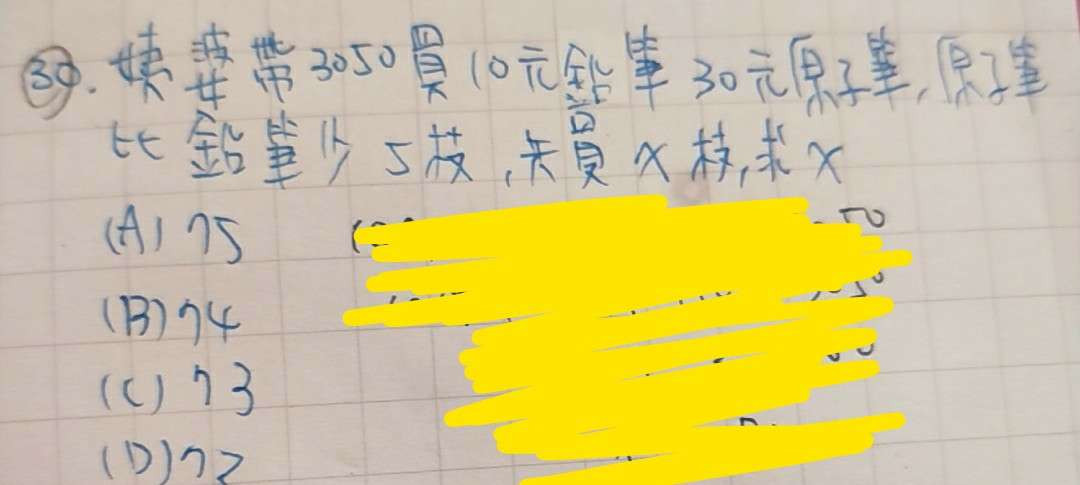 30. 姨婆帶3050買10元鉛筆30元原子筆,原子筆
比鉛筆少5枝,共買X枝,求X
(A) 75
50
(B) 74
(C) 73
(D) 72